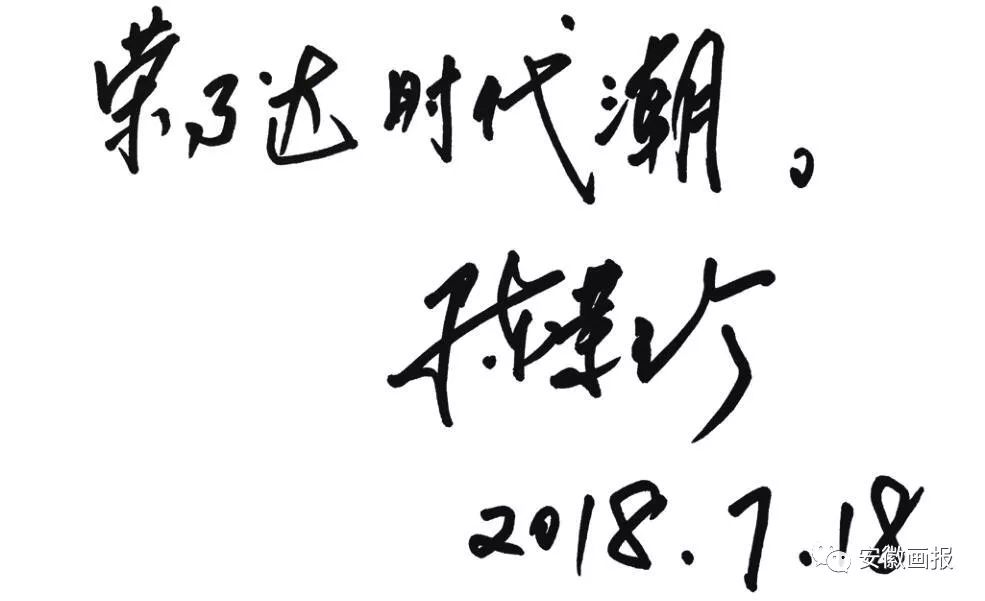 荣事达时代潮。
陈荣珍
2018.7.18
安徽画报